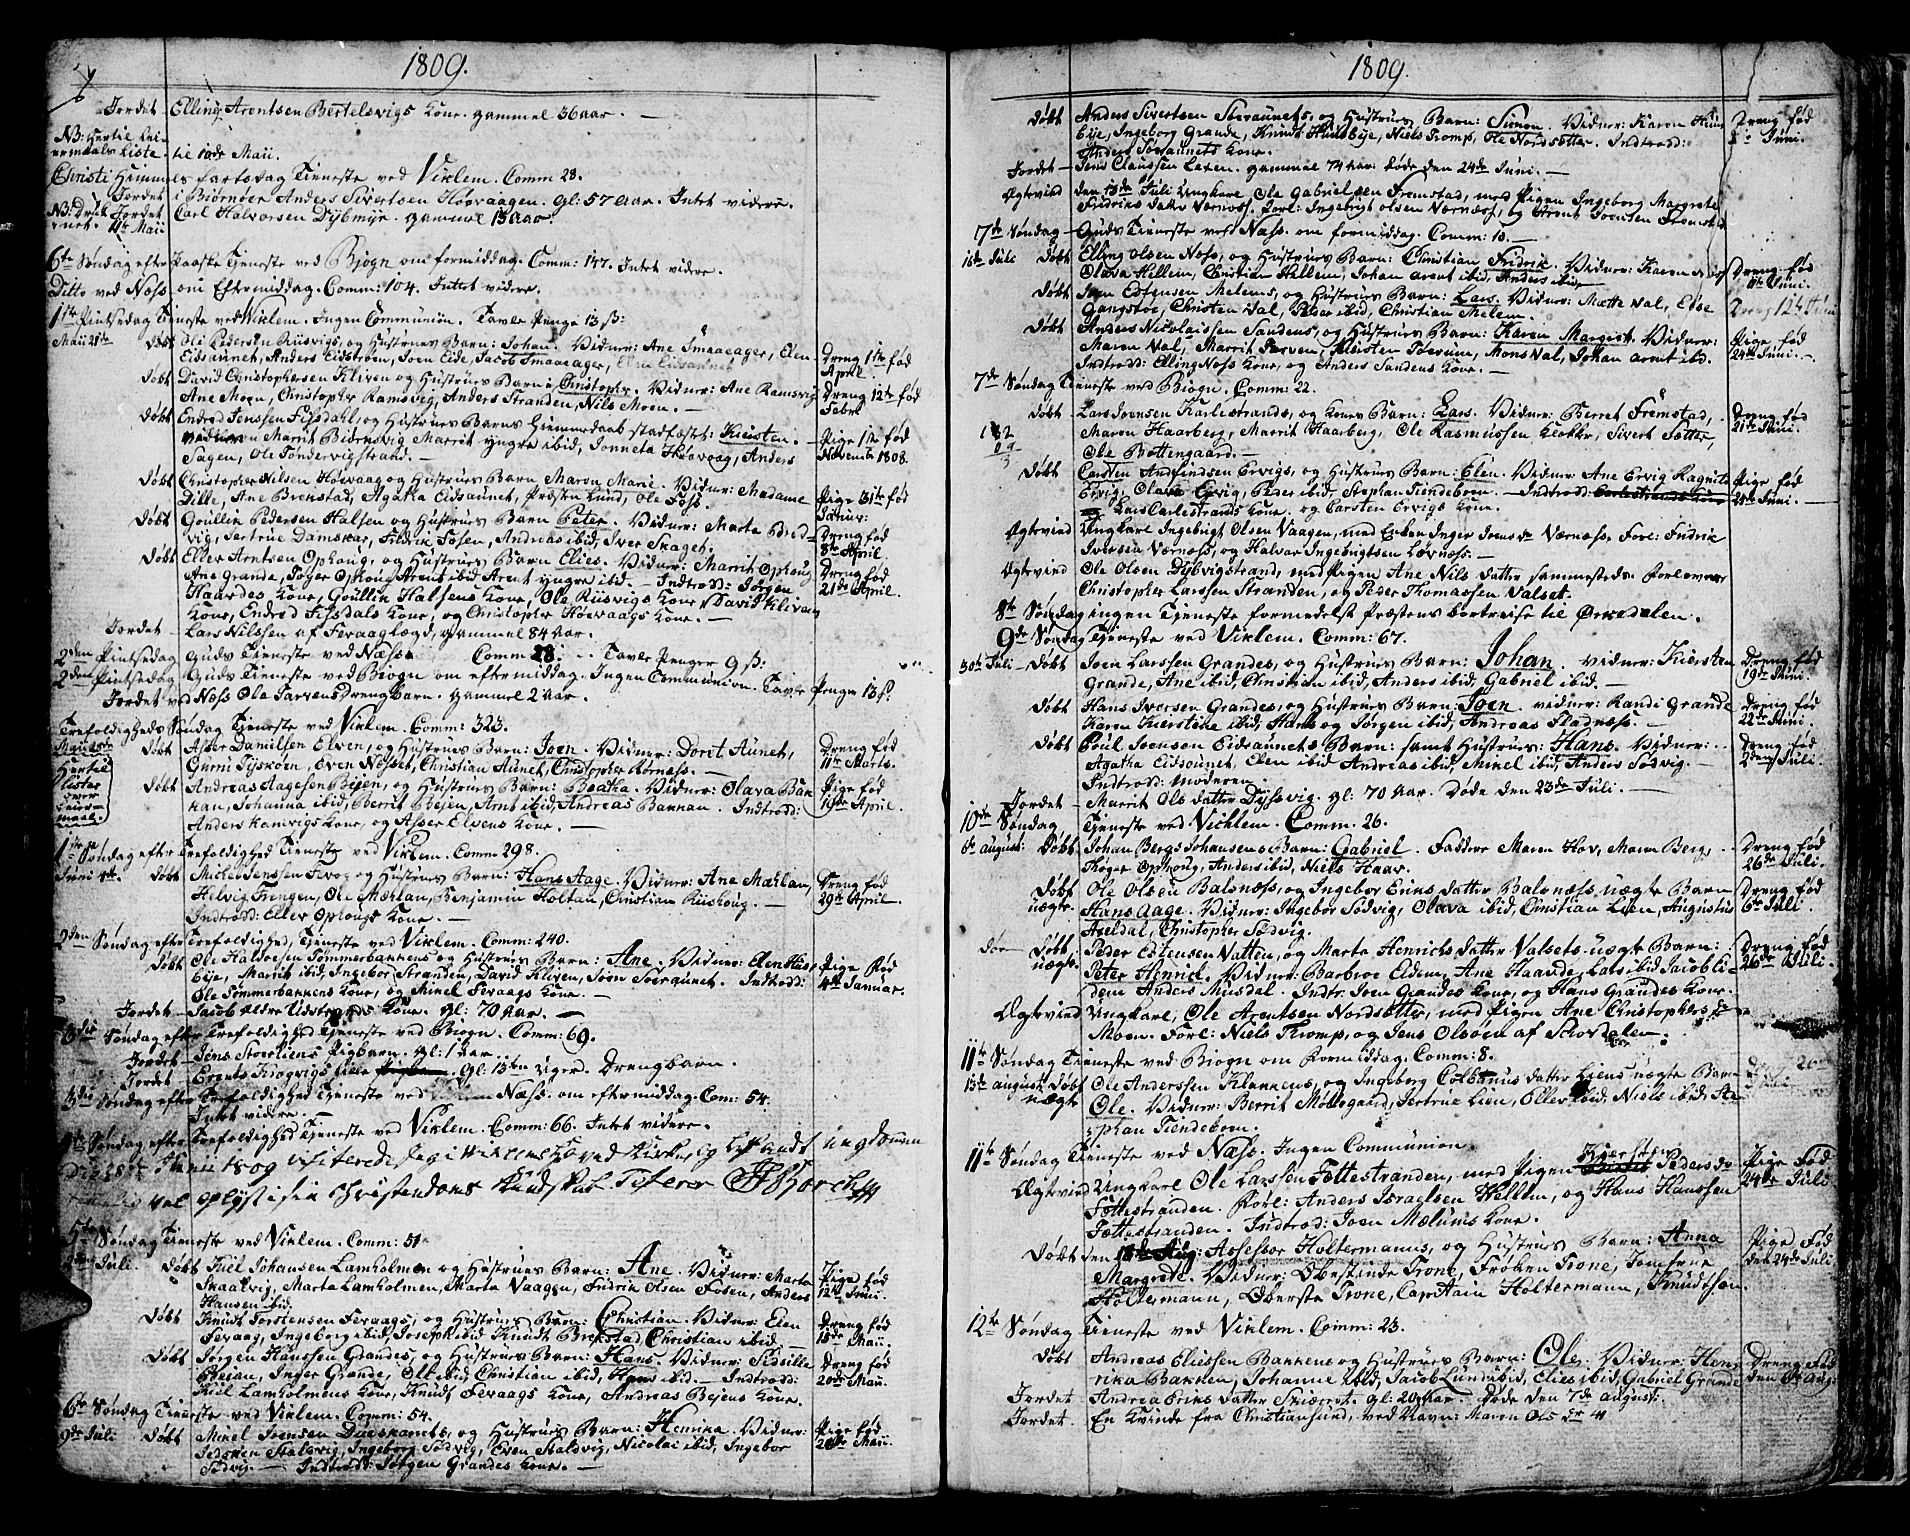 1809.
Jordet Elling Arentsen Bertelsvigs Kone. gammel 36 aar. —
NB: Hertil Leiermaals Liste til 10de Maii.
Christi Himmelfartsdag Tieneste ved Viklem. Comm 28.
Jordet i Biørnøer Anders Sivertsen Høvaagen. gl: 57 Aar. Intet videre.
Jordet Carl Halvorsen Dybmyr. gammel 13 Aar.
11te Maii
6te Søndag efter Paaske Tieneste ved Bjogn om formiddag. Comm: 147. Intet videre.
Ditto ved Næss om Eftermiddag. Comm: 104. Intet videre.
1ste Pintsedag Tieneste ved Viklem. Ingen Communion. Tavle Penge 13 ß:
Maii 21de Døbt Ole Pedersen Riisvigs, og Hustrues Barn: Johan. Vidner: Ane Smaaeager, Elen
Eidsaunet, Anders Eidstrøm, Joen Eide, Jacob Smaaeager, Elen Eidsaunet
Dreng 1ste fød April.
Døbt David Christophersen Kliven og Hustrues Barn: Christopher. Vidner: Ane Ramsvig
Ane Moen, Christopher Ramsvig, Anders Stranden, Nils Moen. —
Dreng 12te fød Febr.
Døbt Endred Jenssen Fissdahl, og Hustrues Barns Hiemmedaab stadfæstet: Kiersten. —
Marrit Bidensvig Marrit yngre ibid, Jonneta Høovaag, Anders
Sagen, Ole Tøndervigstrand. —
Pige 1ste fød November 1808.
Døbt Christopher Nilsen Høevaag og Hustrues Barn Maren Marie. Vidner: Madame
Dille, Ane Bremstad, Agatha Eidsaunet, Præsten Lund, Ole Foss.
Pige 31te fød Januar:
Døbt Goullin Pedersen Halsen og Hustrues Barn Peter. Vidner: Marta
vig, Jertrue Damskar, Fridrik Fosen, Andreas ibid, Iver Skaget.
Dreng fød 8te April.
Døbt Eller Arntsen Ophoug, og Hustrues Barn Elies. Vidner: Marrit Ophoug
Ane Grande, Tøger Ophoug Arent ibid Arent yngre ibid. — Indtrod: Jørgen
Haardes Kone, Goullin Halsens Kone, Ole Riisvigs Kone, David Kliven
Kone, Endred Fissdals Kone, og Christopher Høevaags Kone. —
Dreng fød 21de April.
Jordet Lars Nilssen af Fevaaglægd, gammel 84 Aar. —
2den Pintsedag Guds Tieneste ved Næss. Comm 28. Tavle Penger 9 ß:
2den Pintsedag Guds Tieneste ved Biogn om eftermiddag. Ingen Communion. Tavle Penge 13 ß.
Jordet ved Næss Ole Tarvens Drengbarn. gammel 2 Aar.
Trefoldigheds Søndag Tieneste ved Viklem. Comm: 323.
Maii 28de Døbt Asser Danilsen Elven, og Hustrues Barn: Joen. Vidner: Dorit Aunet,
Gurru Tyskøen, Even Nesset, Christian Aunet, Christopher Rørness. —
Dreng fød 11te Marts.
Hertil lister over Leiermaal.
Døbt Andreas Aagesen Bejen, og Hustrues Barn: Beatha. Vidner: Olava Bak
kan, Johanna ibid, Berrit Bejen, Arnt ibid, Andreas Bakkan. Indtrod:
Anders Kamvigs Kone, og Asser Elvens Kone. —
Pige fød 19de April.
1ste Søndag efter Trefoldighed Tieneste ved Viklem. Comm 298.
Juni 4de. Døbt Michel Jenssen Fevog og Hustrues Barn: Hans Aage. Vidner: Ane Mælan,
Helvig Fringen, Ole Mælan, Benjamin Holtan, Christian Riishoug. —
Indtrod: Eller Ophougs Kone. —
Dreng fød 29de April.
2den Søndag efter Trefoldighed, Tieneste ved Viklem. Comm: 240.
Døbt Ole Haldorsen Sommerbakkens og Hustrues Barn: Ane. Vidner: Elen Huus
Eye, Marrit ibid, Ingebor Stranden, David Kliven, Joen Soeraunet. Indtrod:
Ole Sommerbakkens Kone, og Mikel Fevaags Kone. —
Pige Fød 4de Januar.
Jordet Jacob Aldre Udstrands Kone. gl: 70 Aar. —
3die Søndag efter Trefoldighed Tieneste ved Biogn. Comm: 69.
Jordet Jens Stoerliens Pigbarn. gl: 1 Aar
Jordet Erents Krogvigs lille gl: 13ten uger. Drengbarn.
3die Søndag efter Trefoldighed Tieneste ved Næss. om eftermiddag. Com: 54.
Intet videre. —
4de Søndag efter Trefoldighed Tieneste ved Viklem. Comm: 66. Intet videre.
visiterede jeg i Hoved Kirke og ungdommen
vel oplyst i sin Christendoms Kundskab. Testerer
5te Søndag Tieneste ved Viklem. Comm: 51
2den Juli. Døbt Kiel Johansen Lamholmen og Hustrues Barn: Ane. Vidner: Marta
Skaalvig, Marta Lamholmen, Marta Vaagen, Fridrik Olsen Fosen, Anders
Hansen ibid.
Pige fød 12te Juni.
Døbt Knudt Torstensen Fevaags, og Hustrues Barn: Christian. Vidner: Elen
Fevaag, Ingeborg ibid, Joseph ibid Knudt Brekstad, Christian ibid —
Dreng fød 15de Maii.
Døbt Jørgen Hanssen Grandes, og Hustrues Barn: Hans. Vidner: Sidsille
Beian, Inger Grande, Ole ibid, Christian ibid, Hans ibid. — Indtrod:
Kiel Lamholmens Kone, Knudt Fevaags Kone, Andreas Bejens Kone.
Dreng fød 20de Maii.
6te Søndag Tieneste ved Viklem. Comm: 54.
9de Juli Døbt Mikel Joensen Dueskarets, og Hustrues Barn: Henrika. Vidner:
Jedsken Stalsvig, Ingeborg Sødvig, Even Staldvig, Nicolai ibid, Ingebor
Sødvig. — Indtrod: Jørgen Grandes Kone. —
Pige fød 28de Maii.
1809.
Døbt Anders Sivertsen Soeraunets, og Hustrues Barn: Simon. Vidner: Karen Huus
Eije, Ingeborg Grande, Knudt Huusbye, Niels Tromp, Ole Nordsøtter. Indtrod:
Anders Søraunets Kone.
Dreng fød 8de Juni.
Jordet Jens Claussen Lexen. gammel 74 Aar. døde den 24de Juni. —
Ægtevied den 13de Juli Ungkarl Ole Gabrielsen Fremstad, med Pigen Ingeborg Margrete
Fridriks datter Værness. Forl: Ingebrigt Olsen Værness, og Arent Joensen Fremstad
7de Søndag Guds Tieneste ved Næss. om formiddag. Comm: 10. —
16de Juli Døbt Elling Olsen Ness, og Hustrues Barn: Christian Fridrik. Vidner: Karen
Olava Hellem, Christian Hellem, Johan Arent ibid, Anders ibid
Dreng fød 11te Juni.
Døbt Iver Estensen Melems, og Hustrues Barn: Lars. Vidner: Mætte Val, Else
Gangstøe, Christen Val, Peter ibid, Christian Melem.
Dreng 12te
Døbt Anders Nicolaissen Sandens, og Hustrues Barn: Karen Margret. Vidner:
Maren Val, Marrit Tarven, Kiersten Toerum, Mons Val, Johan Arent ibid.
Indtrod: Elling Ness Kone, og Anders Sandens Kone. —
Pige, fød 24de Juni. —
7de Søndag Tieneste ved Biogn. Comm: 22.
Døbt Lars Joensen Karlestrands, og Kones Barn: Lars. Vidner: Berret Fremstad,
Maren Haarberg, Marrit Haarberg, Ole Rasmussen Klokker, Sivert Søtter,
Ole Bottengaard. —
Dreng fød 21de Juni.
Døbt Carsten Andfindsen Ervigs, og Hustrues Barn: Elen. Vidner Ane Ervig Ragnild
Ervig, Olava Ervig, Peder ibid, Stephan Tiendeboen. — Indtrod:
Lars Carlestrands Kone, og Carsten Ervigs Kone.
Pige fød 28de Juni. —
Ægtevied Ungkarl Ingebrigt Olsen Vaagen, med Enken Inger Joens dr Værness, Forl: Fridrik
Iversen Værness, og Halvar Ingebrigtsen Løvness. —
Ægtevied Ole Olsen Dybvigstrand, med Pigen Ane Nils datter sammesteds. Forlovere
Christopher Larssen Stranden, og Peder Thomassen Valset.
8de Søndag ingen Tieneste formedelst Præstens bortreise til Ørkedalen.
9de Søndag Tieneste ved Viklem. Comm: 67.
30te Juli Døbt Joen Larssen Grandes, og Hustrues Barn: Johan. Vidner: Kiersten
Grande, Ane ibid, Christian ibid, Anders ibid, Gabriel ibid. —
Dreng fød 19de Juni.
Døbt Hans Iversen Grandes, og Hustrues Barn: Joen. Vidner: Randi Grande
Karen Kierstine ibid, Hans og Jørgen ibid, Andreas Fladness. —
Dreng fød 22de Juni.
Døbt Poul Joenson Eidsaunets Barn: samt Hustrues: Hans. Vidner:
Agatha Eidsounet, Elen ibid Andreas ibid, Mikel ibid Anders Sødvig. —
Indtrod: Moderen. —
Dreng fød 2den Juli.
Jordet Marrit Ols datter Dyssvig. gl: 70 Aar. Døde den 23de Juli. —
10de Søndag Tieneste ved Vicklem. Comm: 26.
6te August: Døbt Johan Bergs Johansens Barn: Gabriel. Faddere Maren Hov, Maren Berg,
Thøger Ophoug, Anders ibid, Niels Haar.
Dreng fød 26de Juli.
Døbt uægte Ole Olsen Balsness, og Ingebor Erins datter Balsness, uægte Barn
Hans Aage. Vidner: Ingebor Sødvig, Olava ibid, Christian Lien, Augustus
Axeldal, Christopher Sødvig.
Dreng fød 6te Juli
Døbt uægte Peder Estensen Vatten, og Marta Henrichs datter Valsets uægte Barn:
Peter Henrich. Vidner: Barbroe Eldem, Ane Haande, Lars ibid Jacob El
dem Anders Musdal. Indtr: Joen Grandes Kone, og Hans Grandes Kone.
Dreng fød 26de Juli.
Ægtevied Ungkarl, Ole Arentsen Nordsøtter, med Pigen Ane Christophers dr
Moen. Forl: Niels Tromp, og Jens Olsøen af Schordalen.
11te Søndag Tieneste ved Biogn om Formiddag. Comm: 8.
13de august Døbt uægte Ole Anderssen Klakkens, og Ingeborg Colbanus datter Liens uægte Barn
Ole. Vidner: Berrit Møllegaard, Jertrue Lien, Oller ibid, Niels ibid, Ste-
phan Tiendeboen.
11te Søndag Tieneste ved Næss. Ingen Communion
Ægtevied Ungkarl Ole Larssen Føttestranden, med Pigen Kiersten Peders dr
Føttestranden. Forl: Anders Israelsen Hellem, og Hans Hanssen
Føttestranden. Indtrod: Joen Mælums Kone.
Pige Fød 24de Juli
Døbt den 18de Aug: Assessor Holtermanns, og Hustrues Barn: Anna
Margrete. Vidner: Obestinde Trone, Frøken Trone, Jomfrue
Holtermann, Oberste Trone, Captain Holtermann, Knudtsøn.
Pige Fød den 24de Juli
12te Søndag Tieneste ved Viklem. Comm: 23.
Døbt Andreas Eliessen Bakkens og Hustrues Barn: Ole. Vidner: Hen
rika Bakken, Johanne ibid, Jacob Lund ibid, Elies ibid, Gabriel Grande
Dreng Fød den 6te Aug
Jordet Andrea Eriks datter Skiæret. gl: 20 Aar. Døde den 7de august.
Jordet En Kvinde fra Christiansund, ved Navn: Maren Ols dr 41